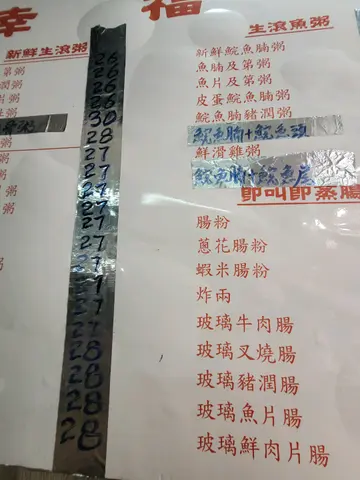 幸
福
新鮮生滾粥
第粥
潤粥
粥
粥
26
26
26
26
30
28
27
27
27
27
27
27
27
27
27
28
28
28
28
生滾魚粥
新鮮鯇魚腩粥
魚腩及第粥
魚片及第粥
皮蛋鯇魚腩粥
鯇魚腩豬潤粥
鯇魚腩+鯇魚頭
鮮滑雞粥
鯇魚腩+鯇魚尾
即叫即蒸腸
腸粉
蔥花腸粉
蝦米腸粉
炸兩
玻璃牛肉腸
玻璃叉燒腸
玻璃豬潤腸
玻璃魚片腸
玻璃鮮肉片腸